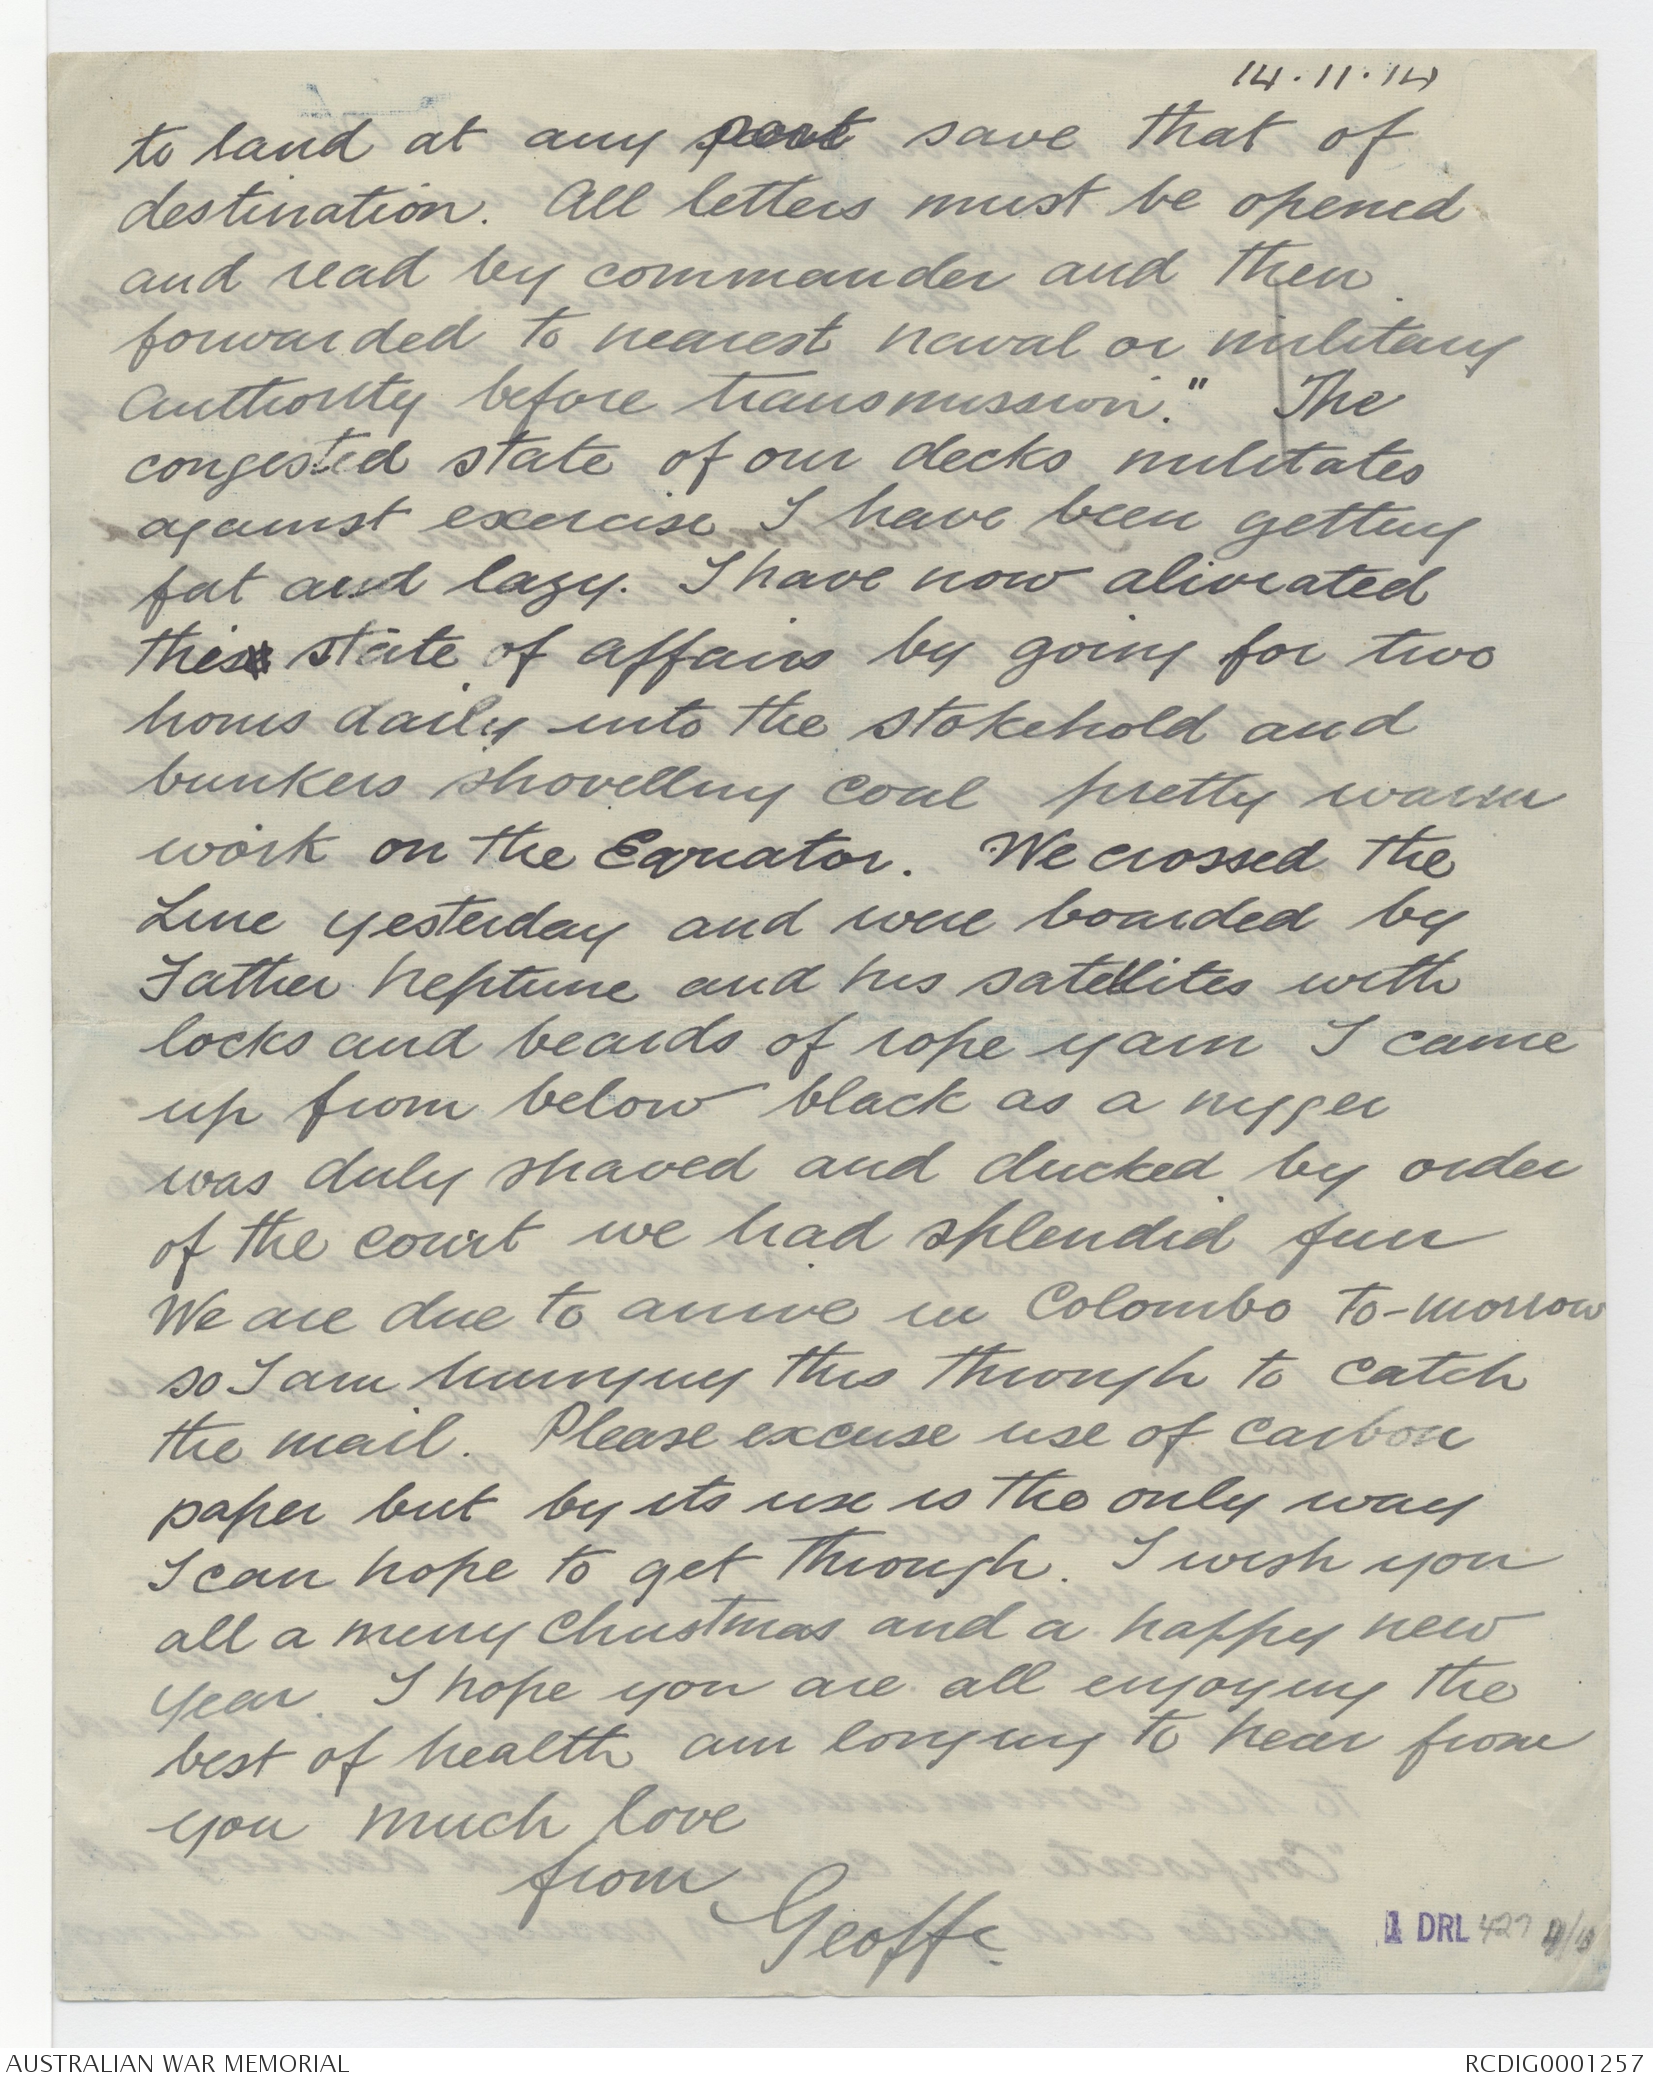 14.11.14
to land at any port save that of
destination. All letters must be opened
and read by commander and then
forwarded to nearest naval or military
Authority before transmission." The
congested state of our decks militates
against exercise I have been getting
fat and lazy. I have now aliviated
this state of affairs by going for two
hours daily into the stokehold and
bunkers shovelling coal pretty warm
work on the Equator. We crossed the
Line yesterday and were boarded by
Father Neptune and his satellites with
locks and beards of rope yarn I came
up from below black as a nigger
was duly shaved and ducked by order
of the court we had splendid fun
We are due to arrive in Colombo to-morrow
so I am hurrying this through to catch
the mail. Please excuse use of carbon
paper but by its use is the only way
I can hope to get through. I wish you
all a merry Christmas and a happy new
year. I hope you are all enjoying the
best of health am longing to hear from
you much love
from
Geoffe
1 DRL 427
AUSTRALIAN WAR MEMORIAL RCDIG0001257